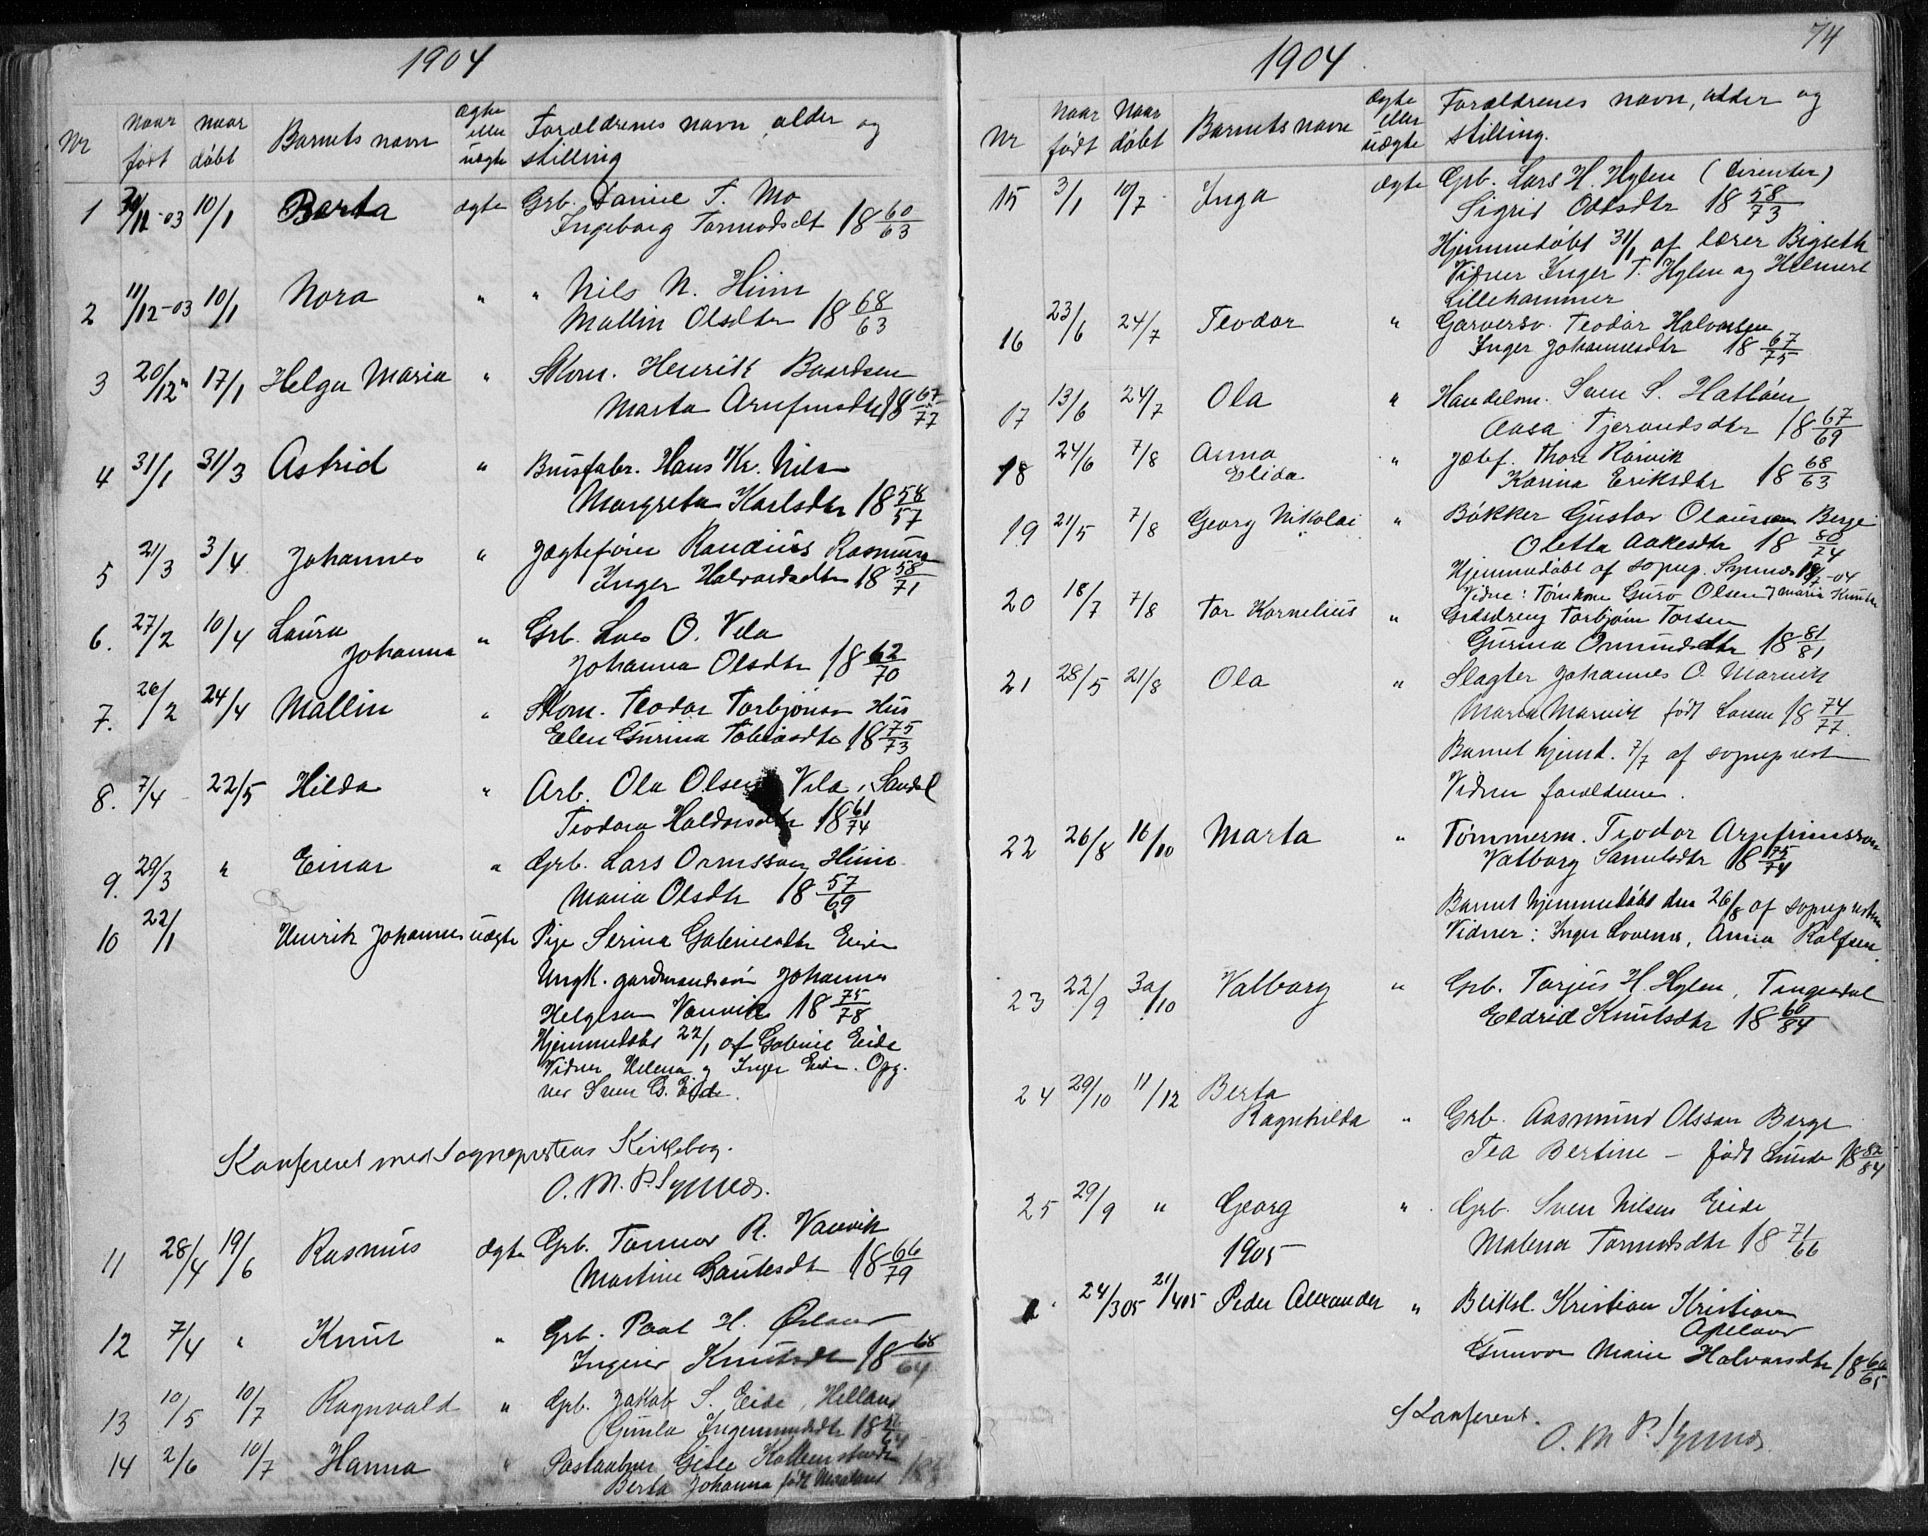 1904
Nr
naar født
naar døbt
Barnets navn
ægte eller uægte
Forældrenes navn, alder og stilling
1 /12-03 10/1 Berta ægte Grb. Daniel T. Mo
Ingeborg Tormodsdt 18 60/63
2 11/12-03 10/1 Nora " " Nils N. Hiim
Mallin Olsdtr 18 68/63
3 20/12 " 17/1 Helga Maria " Skom. Henrik Baardsen
Marta Arnfinsdtr 18 67/77
4 31/1 31/3 Astrid " Brusfabr. Hans Kr. Nils
Margreta Karlsdtr 18 58/57
5 21/3 3/4 Johannes " Jægtefører Randius Rasmusen
Inger Halvardsdtr 18 58/71
6. 27/2 10/4 Laura Johanna " Grb. Lars O. Vela
Johanna Olsdtr 18 62/70
7. 26/2 24/4 Mallin " Skom. Teodor Torbjönsen Hus
Elen Gurina Tobiasdtr 18 75/73
8. 7/4 22/5 Hilda " Arb. Ola Olsen Vela, Saudal
Teodora Haldorsdtr 18 61/74
9. 29/3 " Einar " Grb. Lars Ormsson Hiim
Maria Olsdtr 18 57/69
10 22/1 Henrik Johannes uægte Pige Serina Gabrielsdtr Eide
Ungk. gardmandssøn Johannes
Helgesen Vanvik 18 75/78
Hjemmedøbt 22/1 af Gabriel Eide
Vidner Helena og Inger Eide. Opg.
ver Sven G. Eide.
Konfereret med Sogneprestens Kirkebog.
O. M. P. Synnes.
11 28/4 19/6 Rasmus ægte Grb. Tormod R. Vanvik
Martine Gautesdt 18 66/79
12 7/4 " Knut " Grb. Paal H. Ørland
Inger Knutsdt 18 68/64
13 10/5 10/7 Ragnvald " Grb. Jakob S. Eide, Helland
Gunla Ingemundsdtr 18
14 2/6 10/7 Hanna " Postaabner Gisle Kolbenstvedt
Berta Johanna født Maaland 18
74
1904
Nr
naar født
Naar døbt
Barnets navn
ægte eller uægte
Forældrenes navn, alder og stilling.
15 3/1 10/7 Inga ægte Grb. Lars H. Hylen (dissenter)
Sigrid Oddsdtr 18 58/73
Hjemmedøbt 31/1 af lærer Bigseth
Vidner Inger T. Hylen og Helmert
Lillehammer
16 23/6 24/7 Teodor " Garversv. Teodor Halvorsen
Inger Johannesdtr 18 67/75
17 13/6 24/7 Ola " Handelsm. Sven S. Hatløen
Aasa Tjerandsdtr 18 67/69
18 24/6 7/8 Anna Elida " Jæbf. Thore Rørvik
Karina Eriksdtr 18 68/63
19 21/5 7/8 Georg Nikolai " Bøkker Gustav Olaussen Berge
Oletta Aakesdtr 18 80/74
Hjemmedøbt af sognep. Synnes 18/7-04
Vidne: Tømkone Guro Olsen, J Maria Knutsen
20 18/7 7/8 Tor Kornelius " Grdsdreng Torbjørn Torsen
Gurina Omundsdtr 18 81/81
21 28/5 21/8 Ola " Slagter Johannes O. Marvik
Maria Marvik født Larsen 18 74/77.
Barnet hjemd. 7/7 af sogneprest
Vidner forældrene.
22 26/8 16/10 Marta " Tømmerm. Teodor Arnfinnsson
Valborg Samulsdtr 18 75/74
Barnet hjemmedøbt den 26/8 af sognepresten
Vidner: Inger Lovenes, Anna Rolfsen.
23 22/9 30/10 Valborg " Grb. Torjus H. Hylen, Tengesdal
Eldrid Knutsdtr 18 60/84
24 29/10 11/12 Berta Ragnhilda " Grb. Aasmund Olsson Berge
Tea Bertine - født Lunde 18 82/84
25 29/9 " Georg " Grb. Sven Nilsen Eide
Malena Tormodsdtr 18 71/66
1905
1 24/3 05 21/4 05 Peder Alexander " Bliksl. Kristian Kristiansen
Apeland
Gunvor Marie Halvorsdtr 18 60/65
Konfereret.
O. M. P. Synnes.